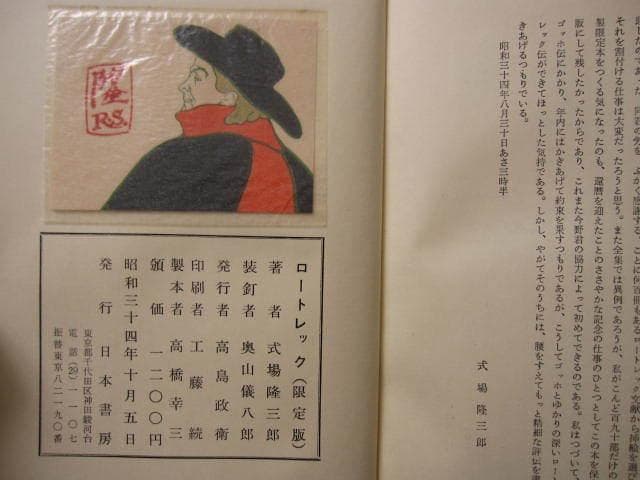 それを割付ける仕事は大変だったろうと思う。また全集では異例であろうが、私がこんど百九十部だけの
製限定本をつくる気になったのも、還暦を迎えたことのささやかな記念の仕事のひとつとしてこの本を保
版にして残したかったからであり、これまた今野君の協力によって初めてできるのである。私はつづいて、
ゴッホ伝にかかり、年内にはかきあげて約束を果すつもりであるが、こうしてゴッホとゆかりの深いロート
レック伝ができてほっとした気持である。しかし、やがてそのうちには、腰をすえてもっと精細な評伝を書
きあげるつもりでいる。
昭和三十四年八月三十日あさ三時半
式場隆三郎
R.S.
ロートレック(限定版)
著者 式場隆三郎
装釘者 奥山儀八郎
発行者 高島政衛
印刷者 工藤続
製本者 高橋幸三
頒価 一二〇〇円
昭和三十四年十月五日
発行 日本書房
東京都千代田区神田駿河台
電話(29)一一〇七
振替東京八二一九〇番